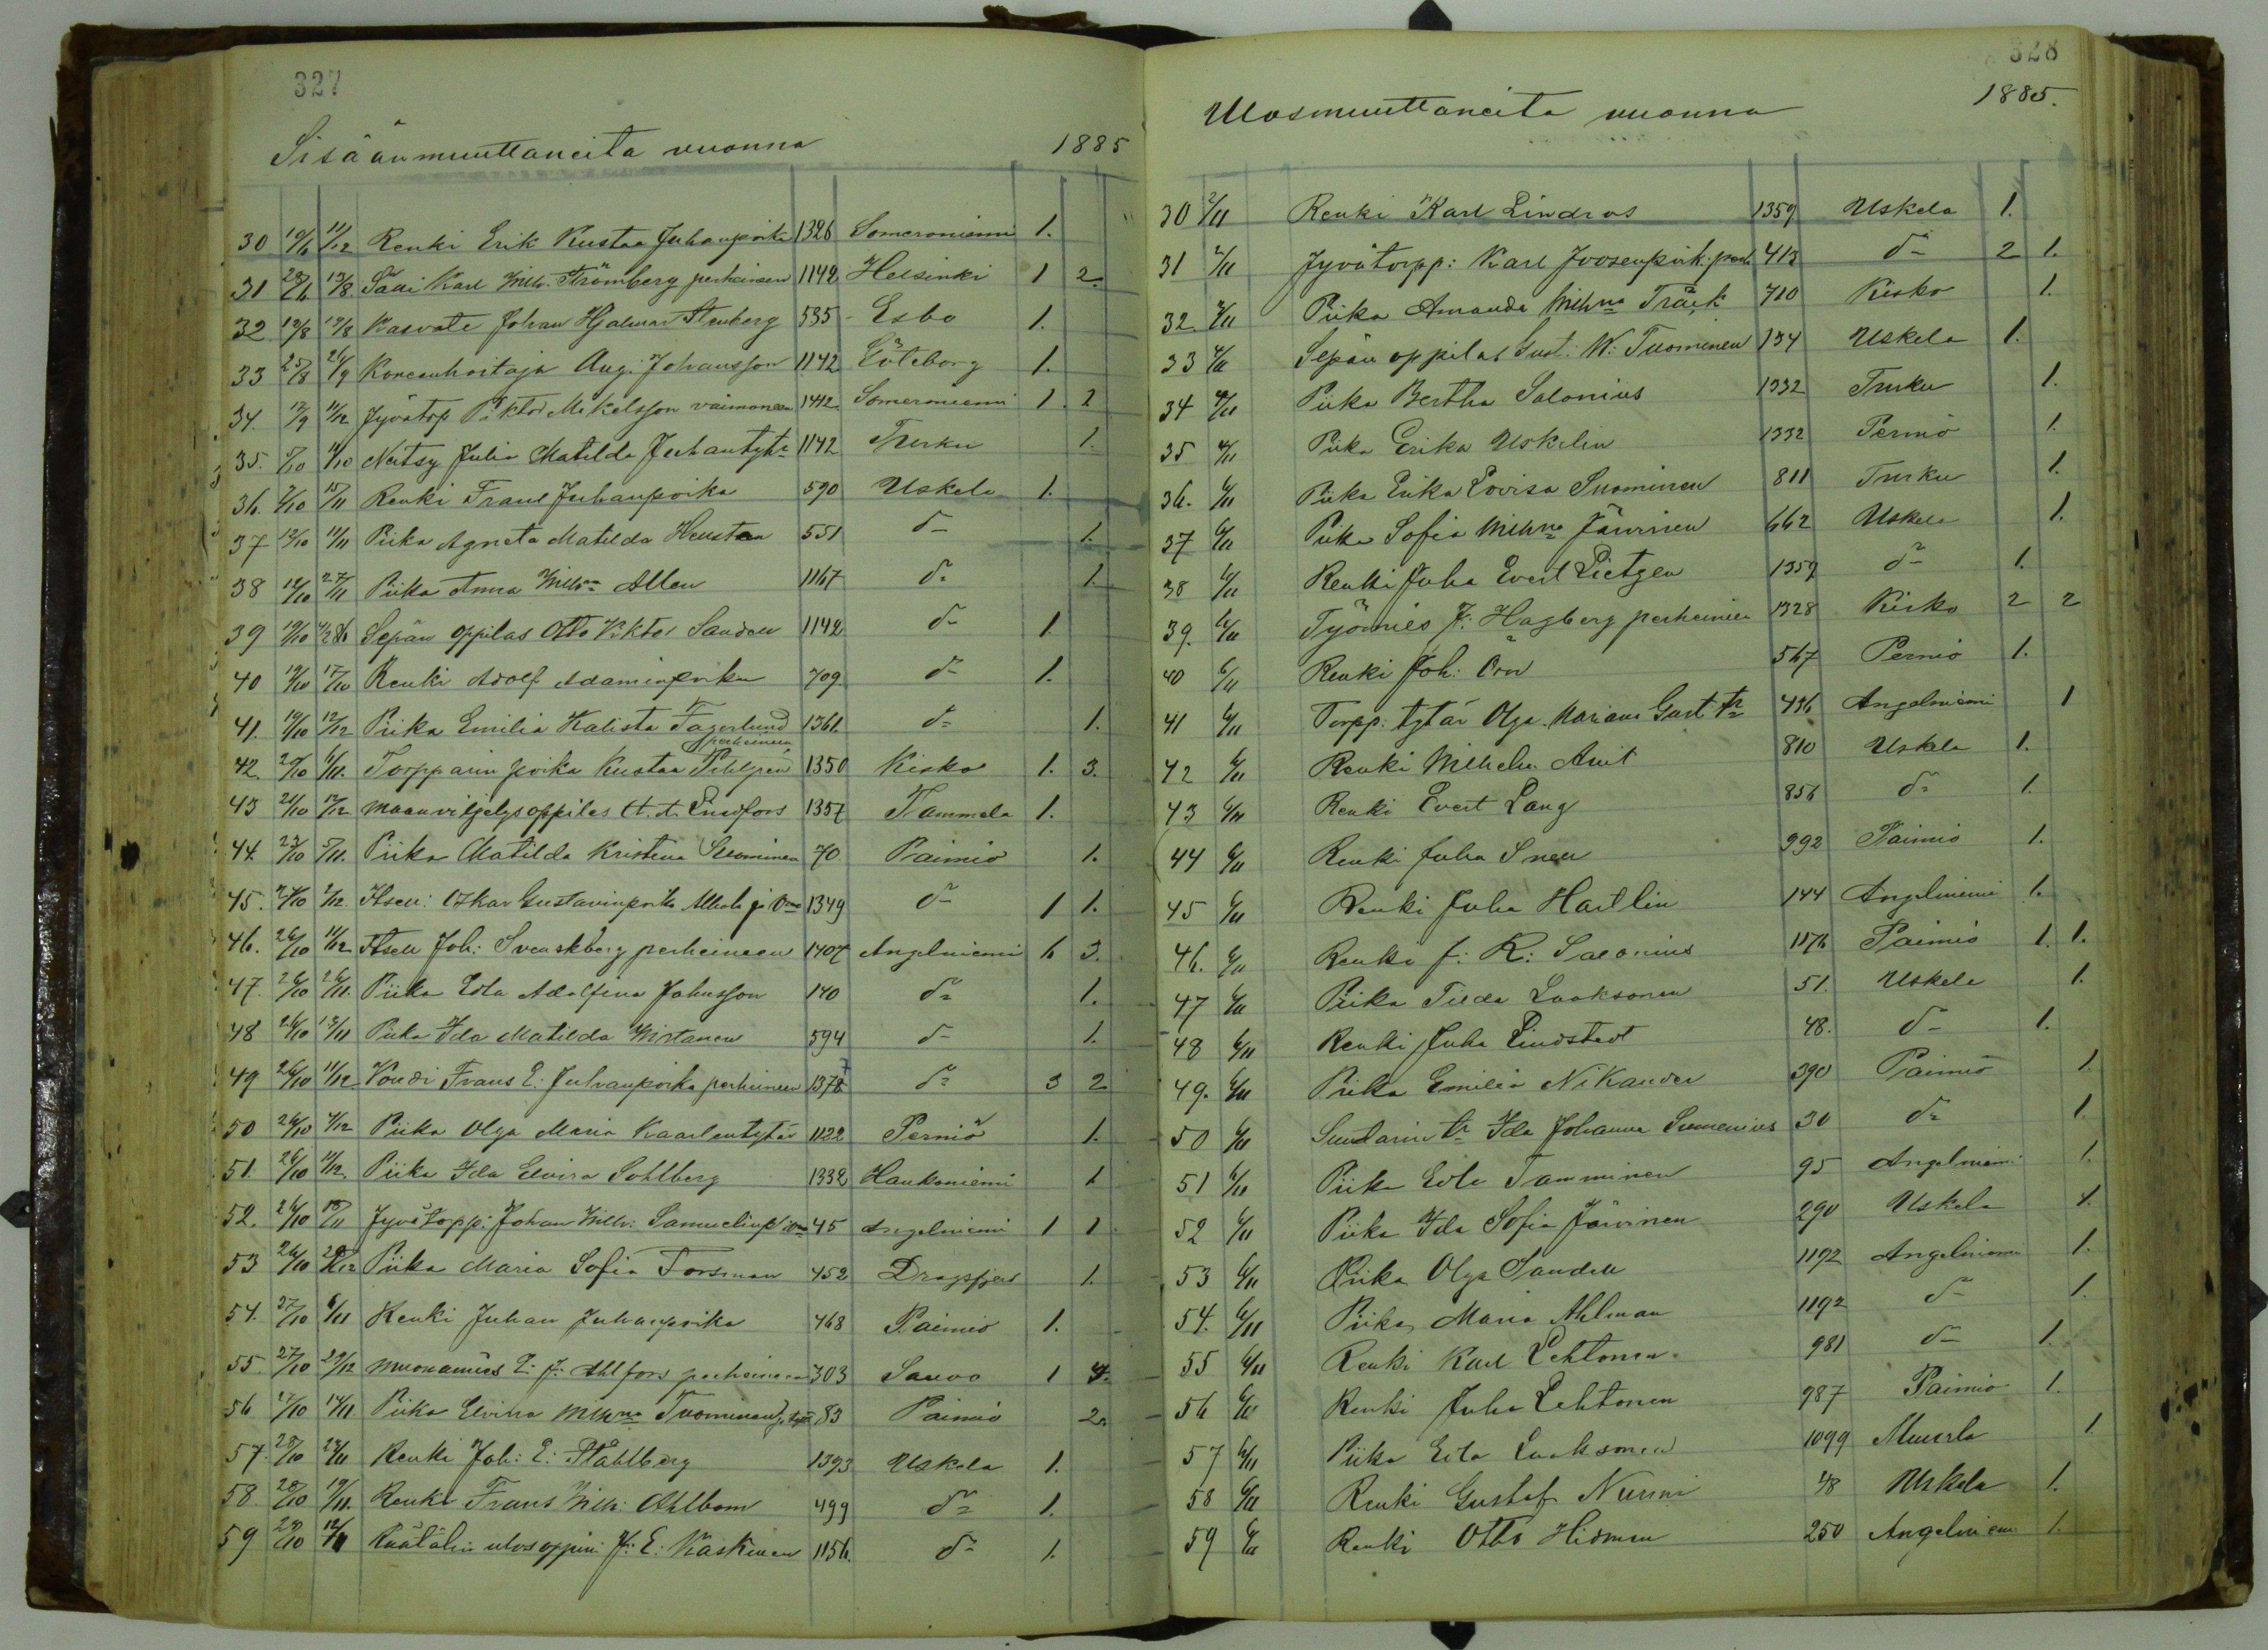 327
Sisäänmuuttaneita vuonna 1885
30 19/6 11/12 Renki Erik Kustaa Juhanpoika 1326 Someroniemi 1.
31 Karl Wilh. Strömberg perheineen 1142 Helsinki 1 2.
32 19/8 19/8 Kasvate Johan Hjalmar Stenberg 535 Esbo 1.
33 25/8 26/9 Koneenhoitaja Aug. Johansson 1142 Göteborg 1.
34. 17/9 11/12 Jyvätorp Viktor Mikelsson vaimoneen 1442. Someroniemi 1. 2
35. Neitsy Julia Matilda Juhantytr 1142 Turku 1.
36. 15/11 Renki Frans Juhanpoika 590 Uskela 1.
37 12/10 11/11 Piika Agneta Matilda 551 d:o 1.
38 12/10 27/11 Piika Anna Wilh:na Allen 1167 d:o 1.
39 19/10 Sepän oppilas Otto Viktor Sandell 1142 d:o 1.
40 19/10 17/10 Renki Adolf Adaminpoika 709. d:o 1.
41. 19/10 12/12 Piika Emilia Kalista Fagerlund 1361. d:o 1.
42. 20/10 6/11. Torpparin poika Kustaa Pihlgren perheineen 1350 Kisko 1. 3.
43 21/10 12/12 Maanviljelysoppilas A. A. Lindfors 1357 Tammela 1.
44. 23/10 5/11. Piika Matilda Kristina Suominen 70 Paimio 1.
45. 24/10 2/12. Itsell: Oskar Gustavinpoika ja 1349 d:o 1 1.
46. 26/10 11/12 Itsell Joh: Svenskberg perheineen 1407 Angelniemi 6 3.
47. 26/10 26/11. Piika Edla Adolfina Johnsson 140 d:o 1.
48 26/10 13/11 Piika Ida Matilda Wirtanen 594 d:o 1.
49 26/10 11/12 Voudi Frans E: Juhanpoika perheineen 1378 d:o 3 2
50 26/10 4/12 Piika Olga Maria Kaarlentytär 1122 Perniö 1.
51. 26/10 11/12. Piika Ida Elvira Sohlberg 1332 Haukoniemi 1
52. 26/10 18/11 Jyvätorpp: Johan Wilh: Samuelinp 45 Angelniemi 1 1
53 26/10 Piika Maria Sofia Forsman 452 Dragsfjerd 1.
54. 27/10 6/11 Renki Juhan Juhanpoika 468 Paimio 1.
55. 27/10 29/12 Muonamies E. J. Ahlfors perheineen 303 Sauvo 1 4.
56 27/10 14/11 Piika Elvira Wilh:na Tuominen 83 Paimio 2.
57. 28/10 23/11 Renki Joh: E: Ståhlberg 1393 Uskela 1.
58. 28/10 19/11. Renki Frans Wilh: Ahlbom 499 d:o 1.
59 12/11 Räätälin ulosoppin: J: E: Kaskinen 1156. d:o 1.
328
Ulosmuuttaneita vuonna 1885.
30 2/11 Renki Karl Lindros 1359 Uskela 1.
31 2/11 Jyvätorpp: Karl Joosenpoik. perh. 413 d:o 2 1.
32. 2/11 Piika Amanda Wilh:na Träsk 710 Kisko 1.
33 4/11 Sepän oppilas Gust: W: Tuominen 134 Uskela 1.
34 4/11 Piika Bertha Salonius 1332 Turku 1.
35 4/11 Piika Erika Uskelin 1332 Perniö 1.
36. 6/11 Piika Erika Lovisa Suominen 811 Turku 1.
37 6/11 Piika Sofia Wilh:na Järvinen 662 Uskela 1.
38 6/11 Renki Juha Evert Lietzen 1359 d:o 1.
39. 6/11 Työmies J: Hagberg perheineen 1328 Kisko 2 2
40 6/11 Renki Joh: Orn 567 Perniö 1.
41 6/11 Torpp: tytär Olga Mariana Gust tr 436 Angelniemi 1
42 6/11 Renki Wilhelm Anit 810 Uskela 1.
43 6/11 Renki Evert Lang 856 d:o 1.
44 6/11 Renki Juha Snell 992 Paimio 1.
45 6/11 Renki Juha Hartlin 144 Angelniemi 1.
46. 6/11 Renki J: R: Salonius 1176 Paimio 1. 1.
47 6/11 Piika Tilda Laaksonen 51. Uskela 1.
48 6/11 Renki Juha Lindstedt 48. d:o 1.
49. 6/11 Piika Emilia Nikander 390 Paimio 1.
50 6/11 Suntarin tr Ida Johanna Sumenius 30 d:o 1.
51 6/11 Piika Edla Tamminen 95 Angelniemi 1.
52 6/11 Piika Ida Sofia Järvinen 290 Uskela 1.
53 6/11 Piika Olga Sandell 1192 Angelniemi 1.
54. 6/11 Piika Maria Ahlman 1192 d:o 1.
55 6/11 Renki Karl Lehtonen 981 d:o 1.
56 6/11 Renki Juha Lehtonen 987 Paimio 1.
57 6/11 Piika Edla Laaksonen 1099 Muurla 1
58 6/11 Renki Gustaf Nurmi 48 Uskela 1.
59 6/11 Renki Otto Hidman 250 Angelniemi 1.